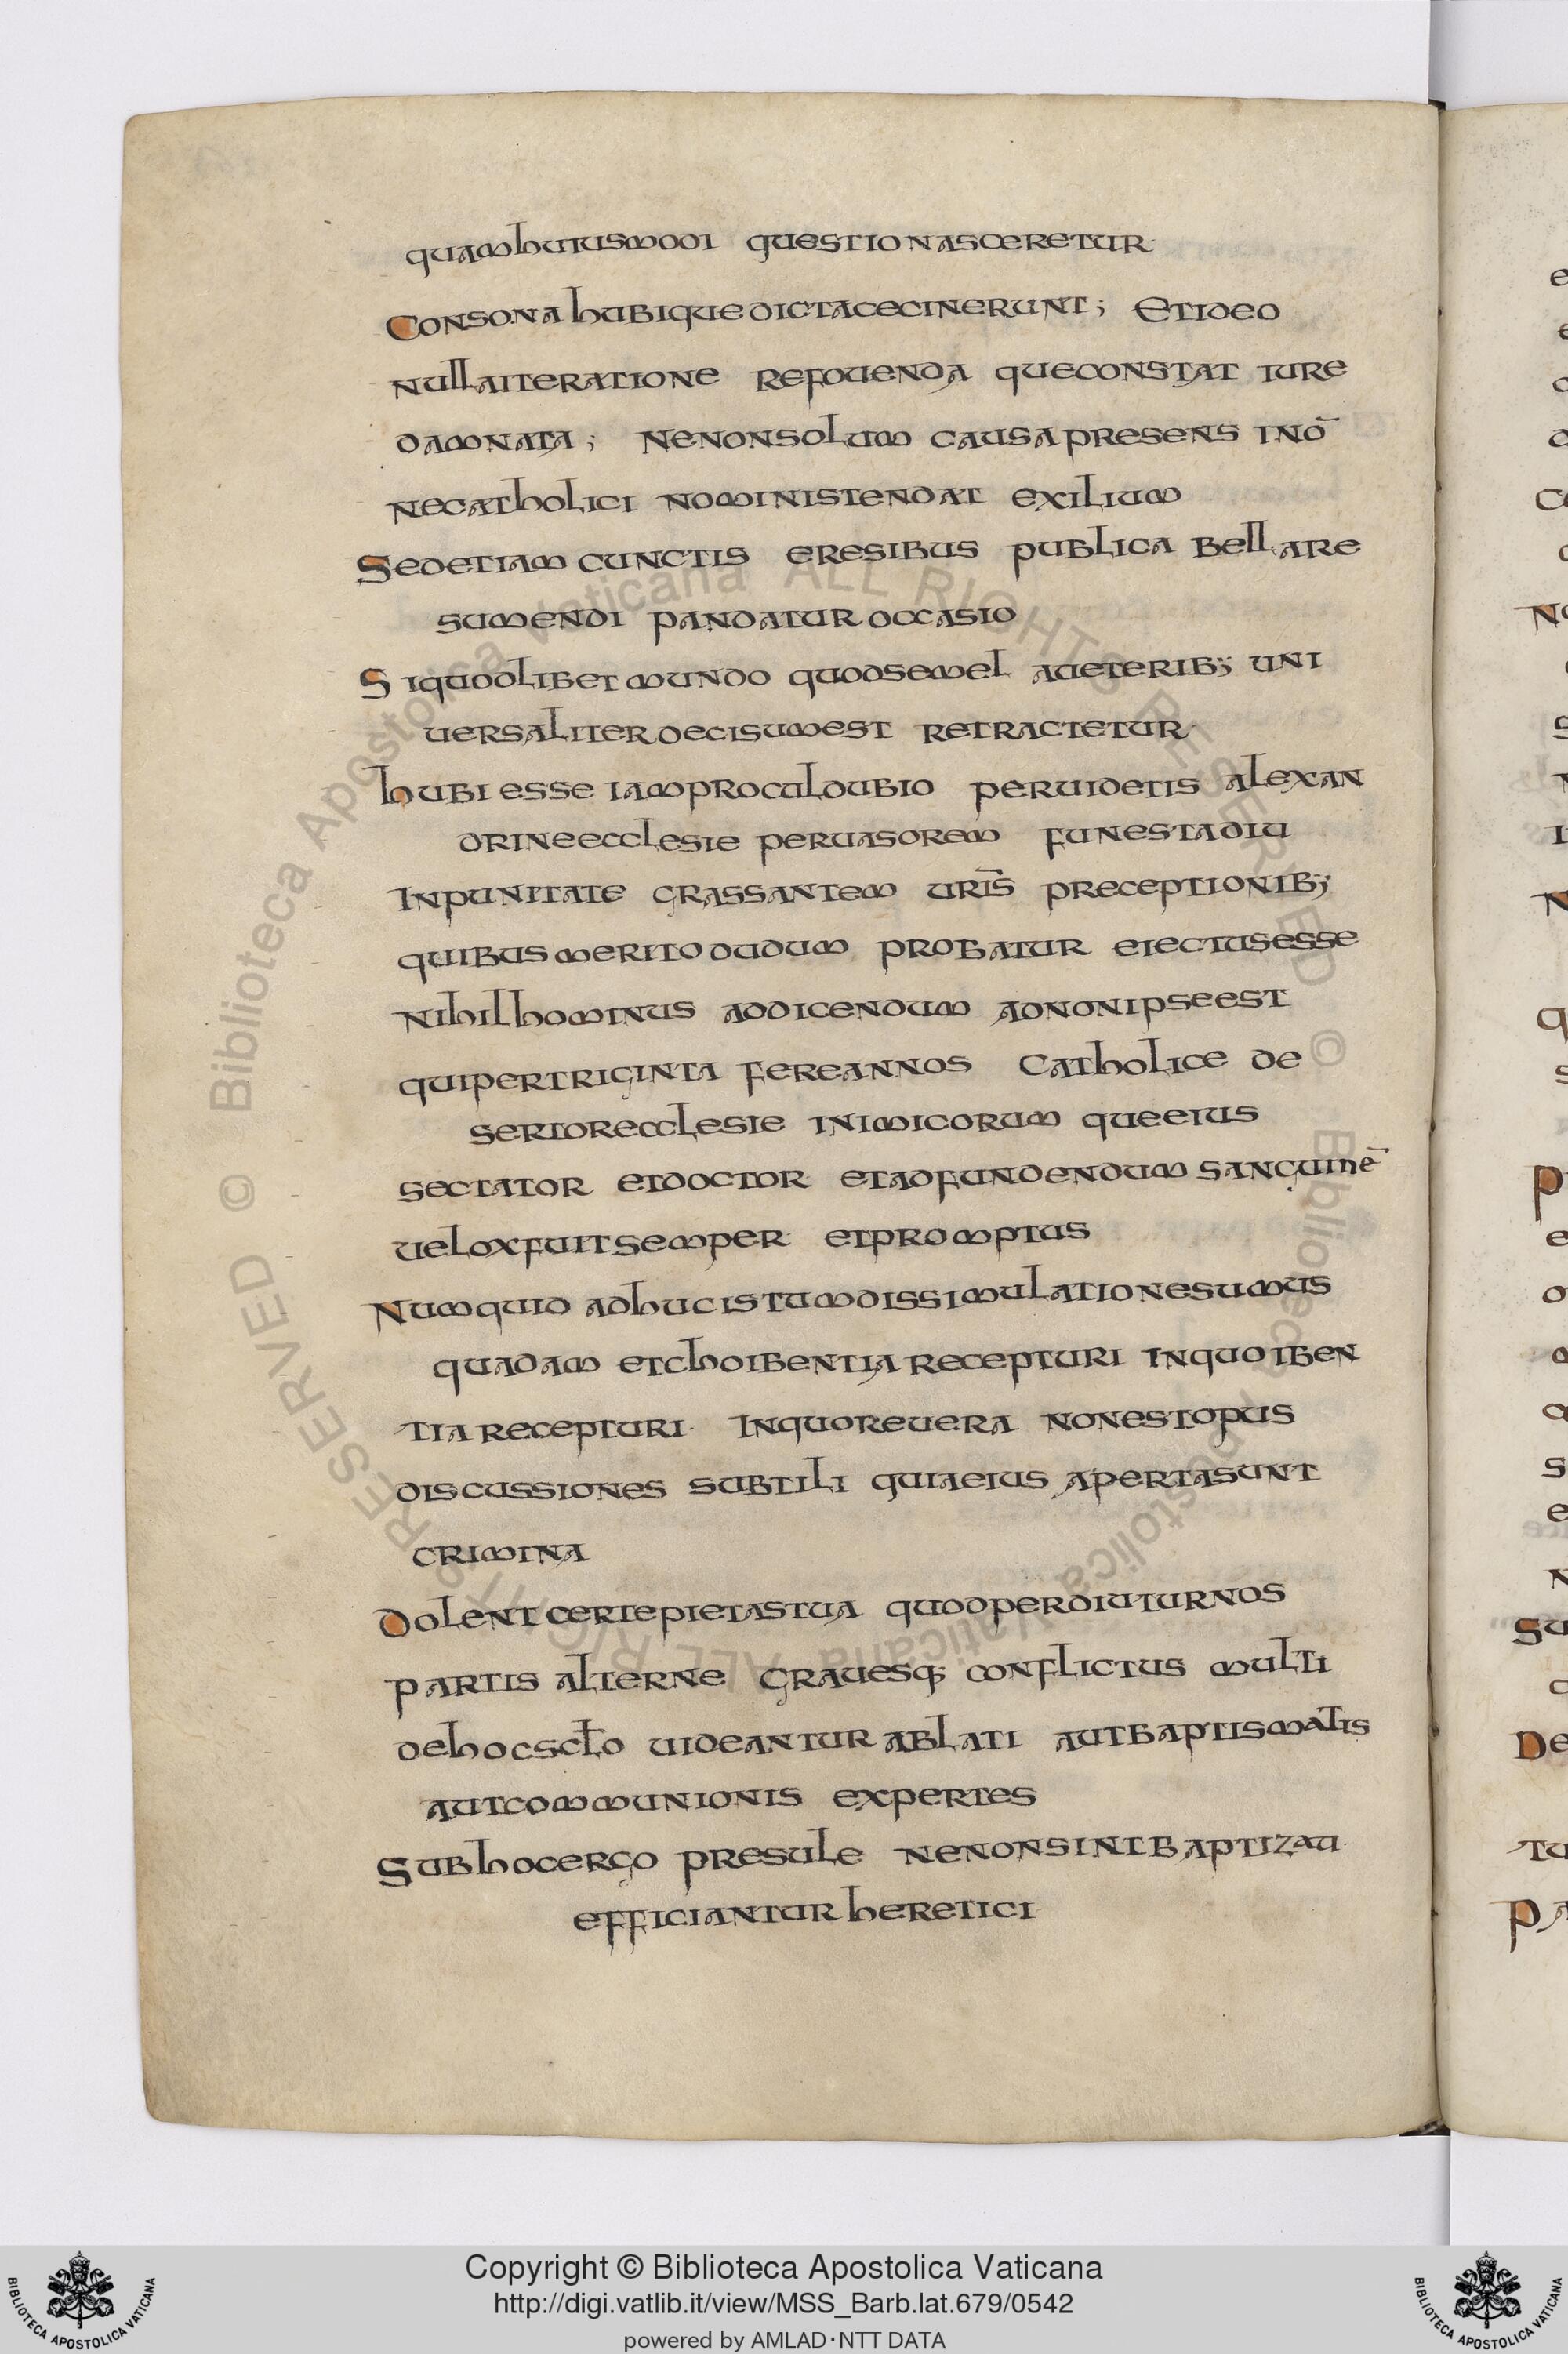 quamhuiusmodi questionasceretur
Consona hubiquedictacecinerunt; Etideo
nullaiteratione refouenda queconstat iure
damnata; nenonsolum causapresens inō
necatholici noministendat exilium
Sedetiam cunctis eresibus publica bellare
sumendi pandatur occasio
Siquodlibet mundo quodsemel aueterib; uni
uersaliterdecisumest retractetur
hubi esse iamproculdubio peruidetis alexan
drineecclesie peruasorem funestadiu
inpunitate grassantem uris̄ preceptionib;
quibusmerito dudum probatur eiectusesse
nihilhominus addicendum adnonipseest
quipertriginta fereannos Catholice de
sertorecclesie inimicorum queeius
sectator etdoctor etadfundendum sanguinē
ueloxfuitsemper etpromptus
Numquid adhucistumdissimulationesumus
quadam etchoibentia recepturi inquoiben
tia recepturi. Inquoreuera nonestopus
discussiones subtili quiaeius apertasunt
crimina
Dolent certepietastua quodperdiuturnos
partis alterne grauesq; conflictus multi
dehocsc̄lo uideantur ablati autbaptismatis
autcommunionis expertes
Subhocergo presule nenonsintbaptizau.
efficiantur heretici
Copyright © Biblioteca Apostolica Vaticana
http://digi.vatlib.it/view/MSS_Barb.lat.679/0542
powered by AMLAD·NTT DATA
BIBLIOTECA APOSTOLICA VATICANA
BIBLIOTECA APOSTOLICA VATICANA
© Biblioteca Apostolica Vaticana ALL RIGHTS RESERVED © Biblioteca Apostolica Vaticana ALL RIGHTS RESERVED